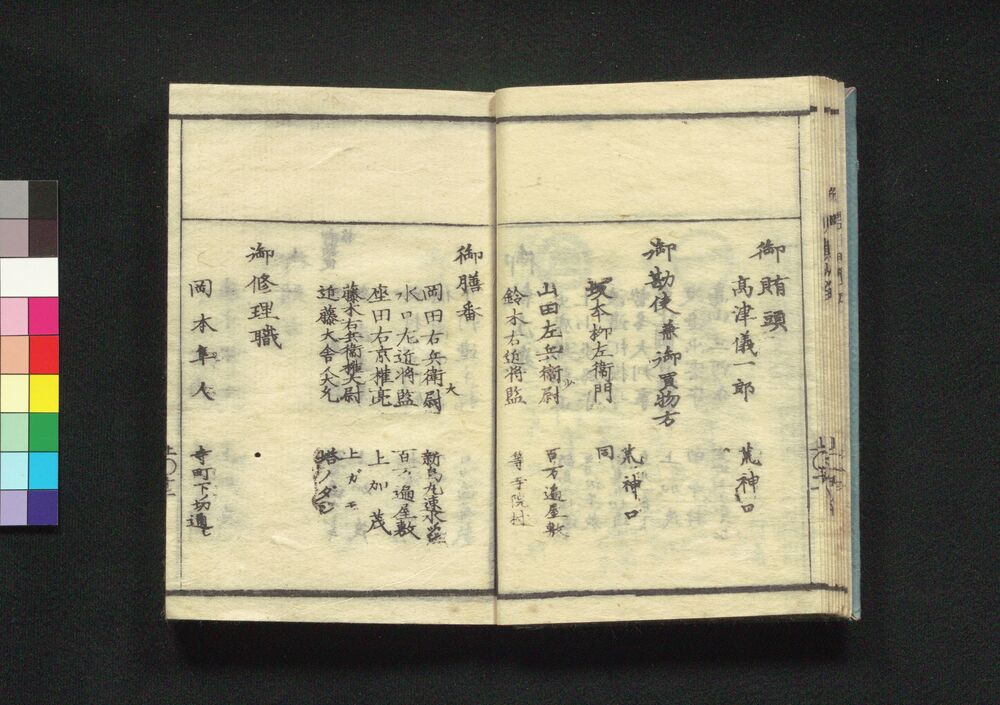 御賄頭
高津儀一郎 荒神口
御勘使兼御買物方
塚本柳左衛門 荒神口
山田左兵衛尉 同 百万遍屋敷
鈴木右近将監 等寺院村
御膳番
岡田右兵衛大尉 新烏丸速水
水口左近将監 百万遍屋敷
座田右京権亮 上加茂
藤木右兵衛権大尉 上ガモ
近藤大舎人大允
御修理職
岡本隼人 寺町下ノ切通シ